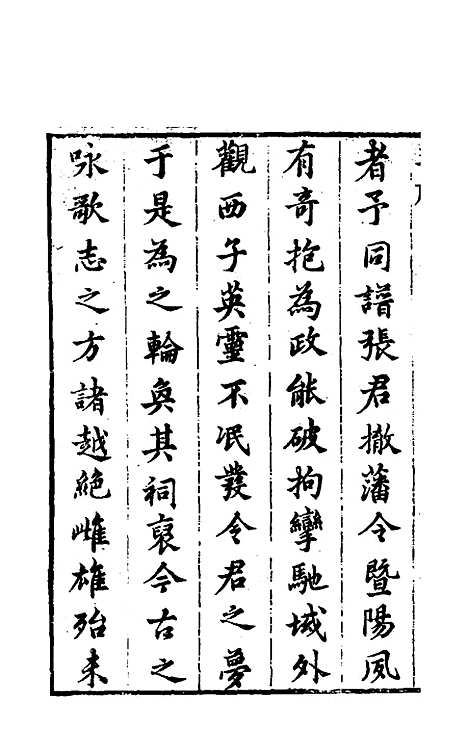 者予同譜張君撤藩令暨陽夙
有奇抱為政能破拘攣馳域外
觀西子英靈不泯發令君之夢
于是為之輪奐其祠裒今古之
咏歌志之方諸越絕雌雄殆未